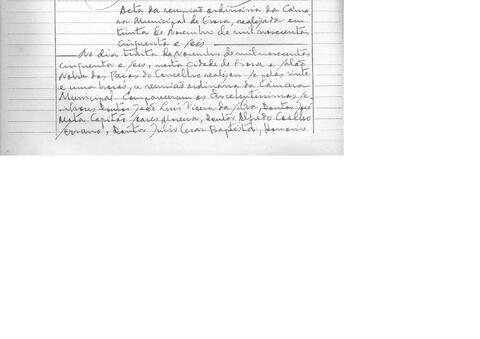 Acta da reunião ordinária da Câma-
ra Municipal de Evora, realizada em
trinta de Novembro de mil novecentos
cinquenta e seis
No dia trinta de Novembro de mil novecentos
cinquenta e seis, nesta cidade de Evora e salão
Nobre dos Paços do Concelho realizou-se pelas vinte
e uma horas, a reunião ordinária da Câmara
Municipal. Compareceram os Excelentissimos se-
nhores Doutor João Luis Vieira da Silva, Doutor José
Capitão Soares Moreira, Doutor Alfredo Coelho
Serrano, Doutor Julio Cesar Baptista,